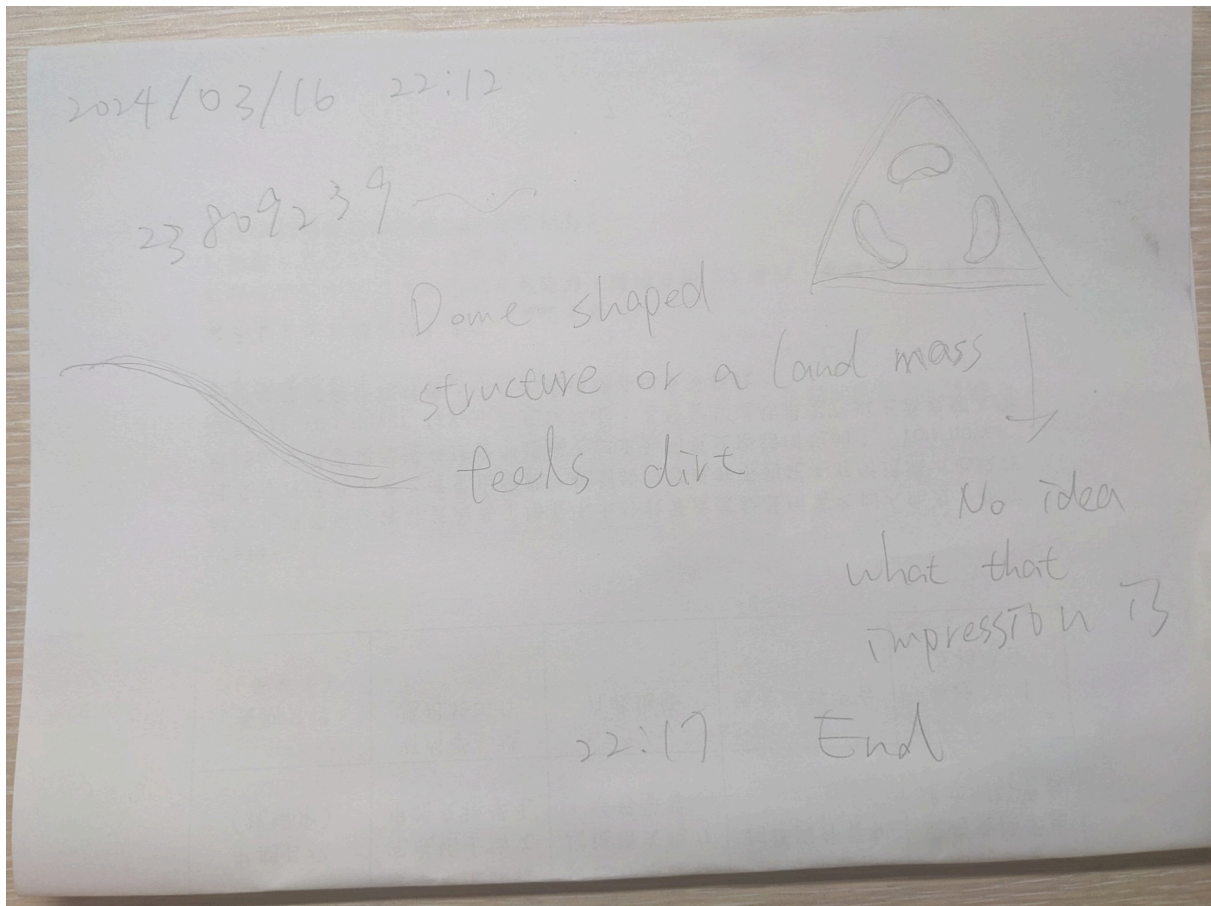 2024/03/16 22:12
23809239
Dome shaped
structure or a land mass
feels dirt
No idea
what that
impression is
22:17 End